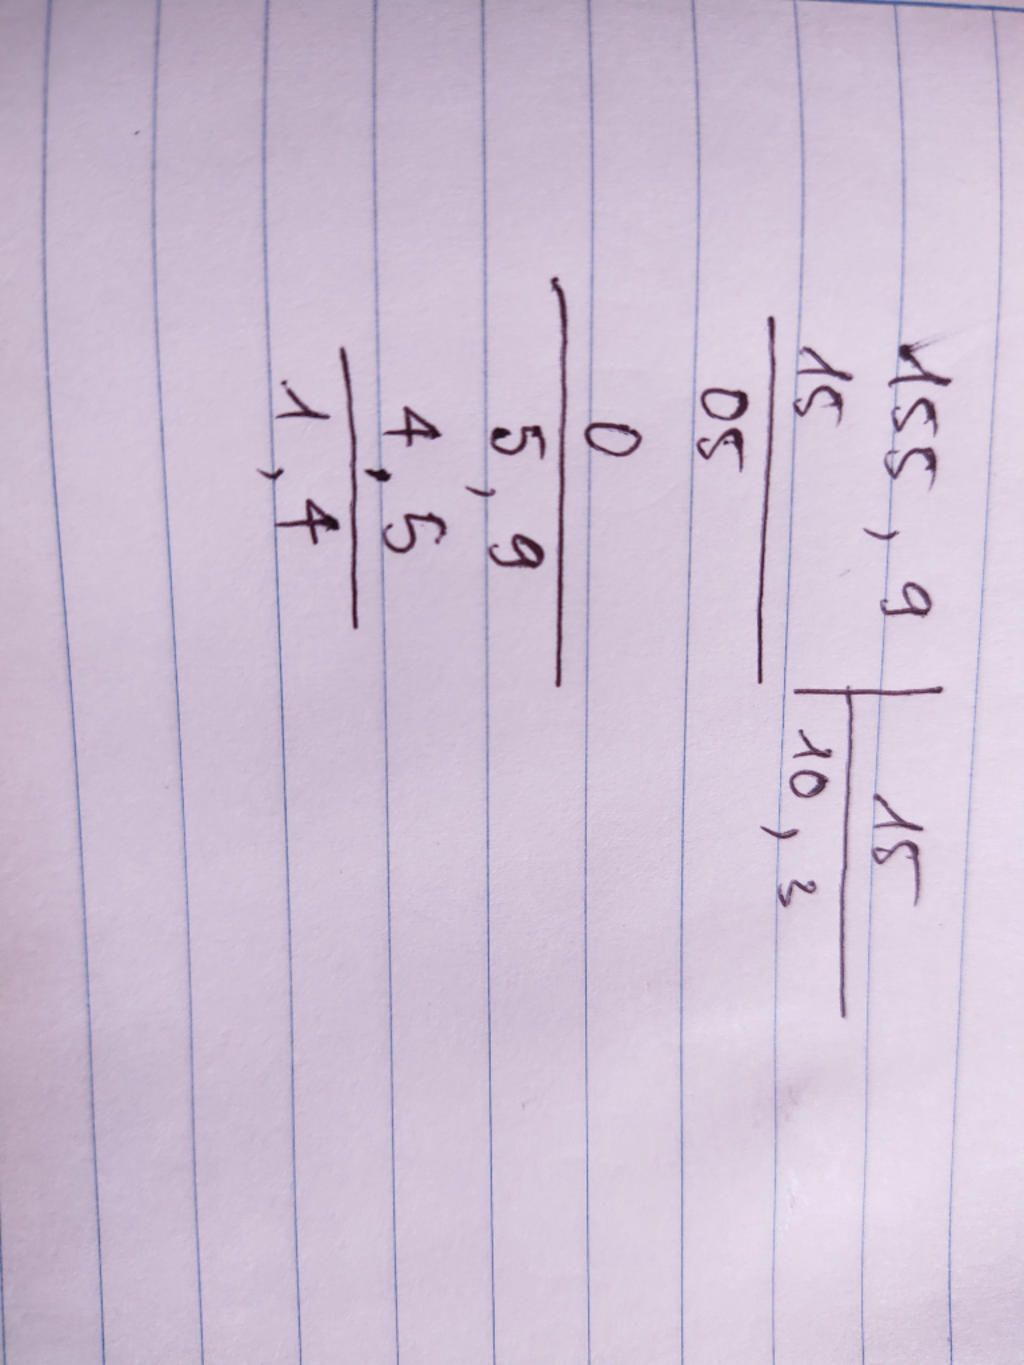 155,9 | 15
15 | 10,3
05
0
5,9
4,5
1,4